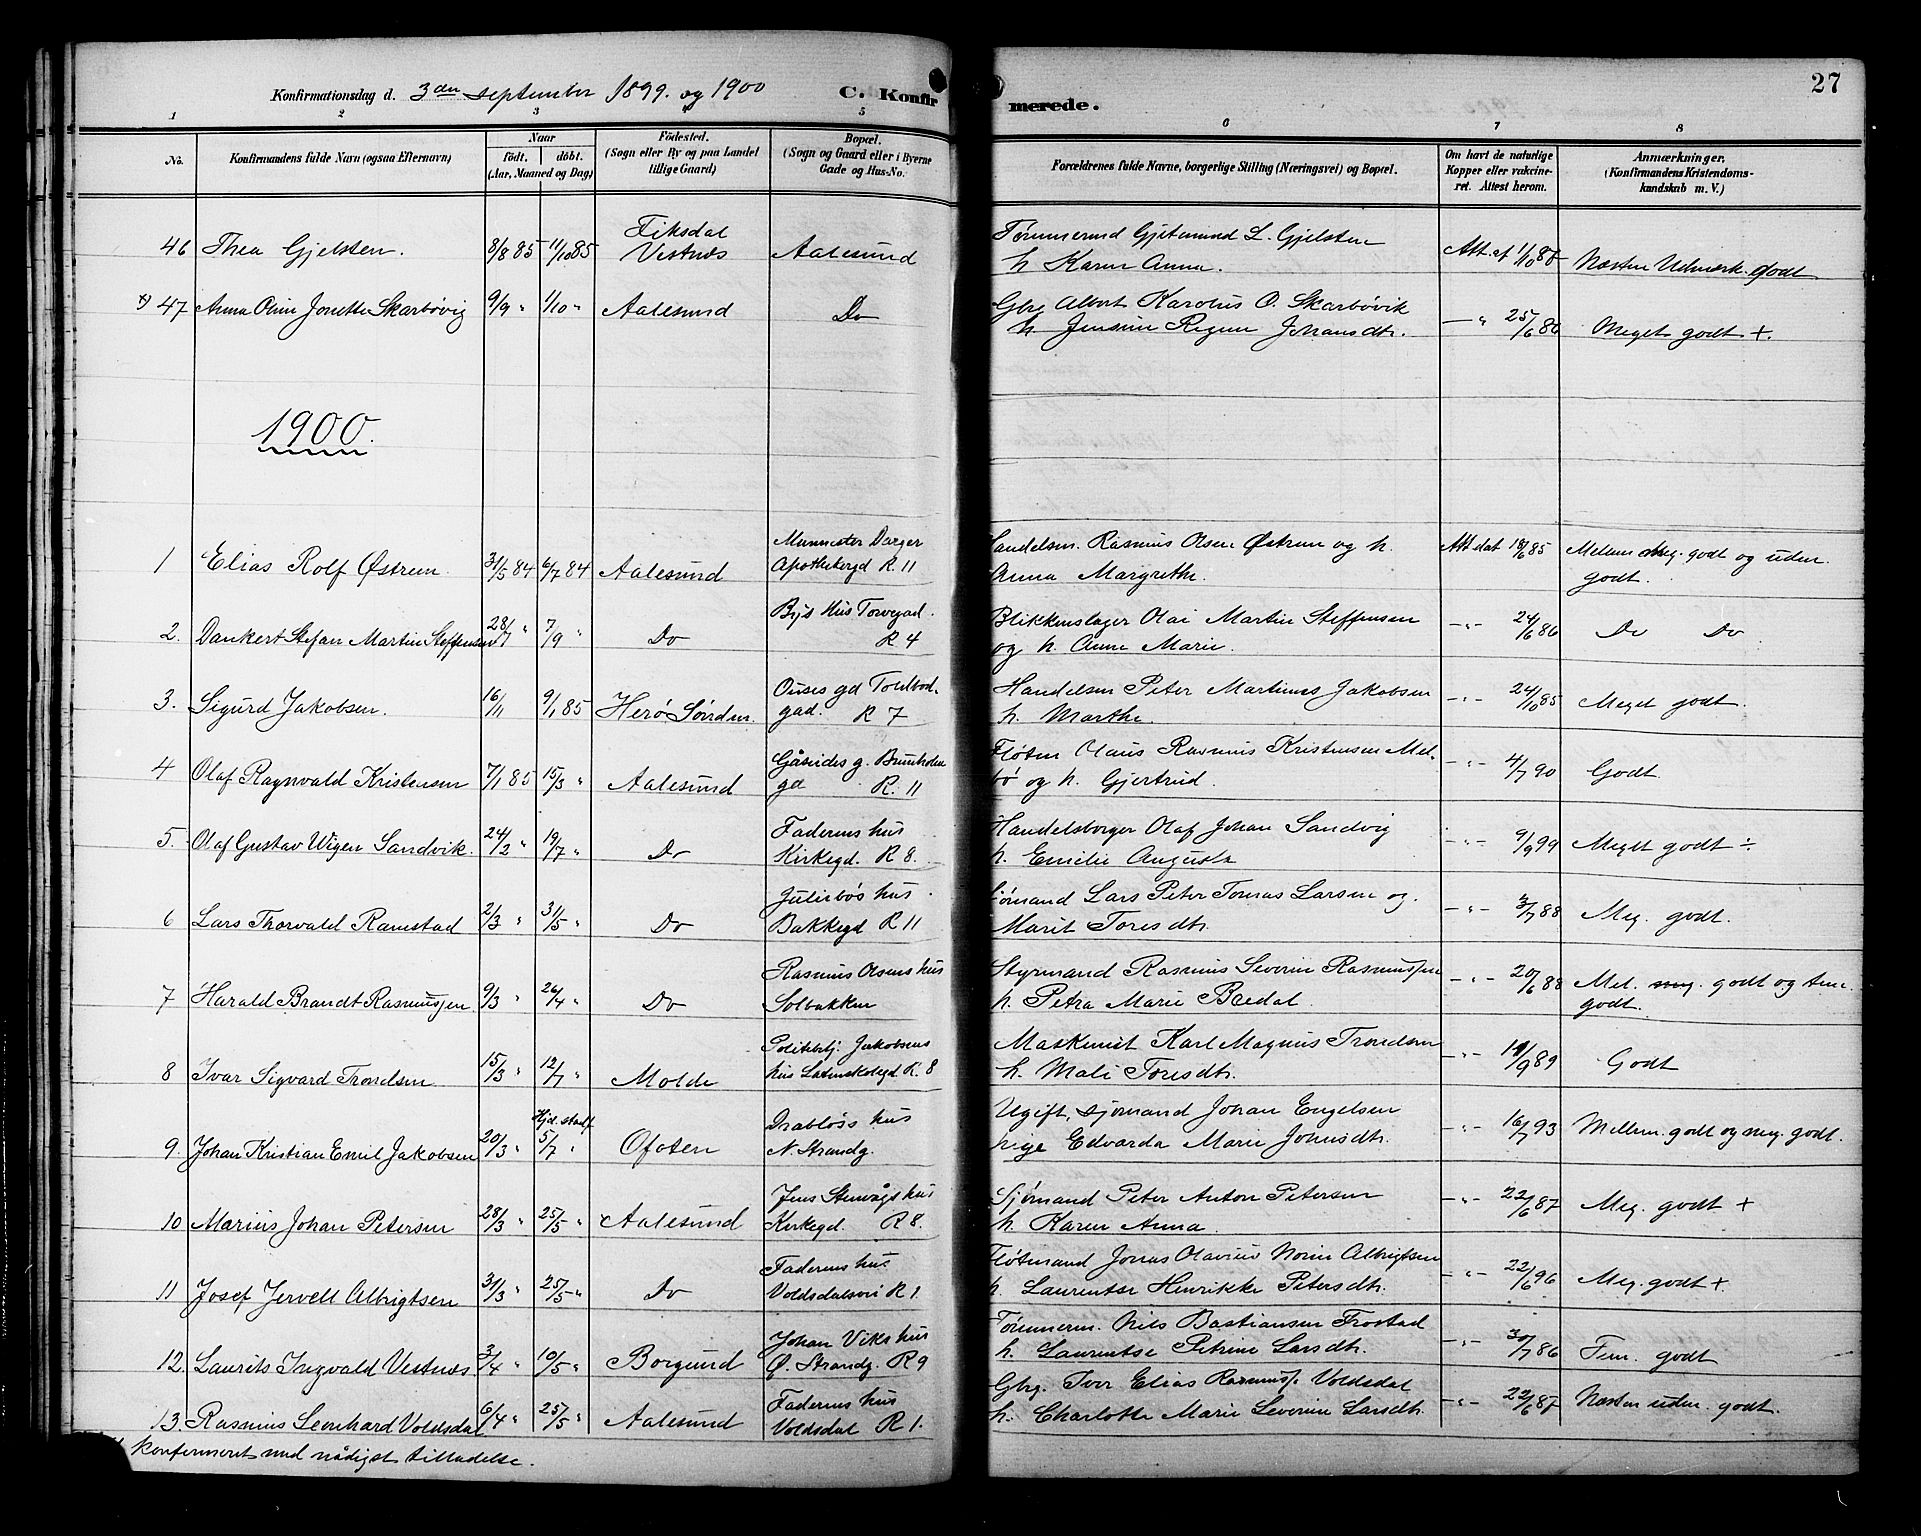 27
Konfirmationsdag d. 3den september 1899. og 1900 C. Konfir merede.
1 2 3 5 6 7 8
No. Konfirmandens fulde Navn (ogsaa Efternavn) Naar födt. döbt. (Aar, Maaned og Dag) Födested. (Sogn eller By og paa Landet tillige Gaard) Bopæl. (Sogn og Gaard eller i Byerne Gade og Hus-No. Forældrenes fulde Navne, borgerlige Stilling (Næringsvei) og Bopæl. Om havt de naturlige Kopper eller vakcine-ret. Attest herom. Anmærkninger. (Konfirmandens Kristendoms-kundskab m. V.)
46 Thea Gjelsten. 8/8 85 11/10 85 Fiksdal Vestnes Aalesund
h. Karen Anna. Att. af Næsten Udmærk. godt
x) 47 Anna Oline Jonette Skarbøvig 9/9 " 1/10 " Aalesund Do
Gbr. Albert Karolus O. Skarbøvik
h. Jensine Regine Johansdtr. — " 25/6 86 Meget godt +.
1900.
1 Elias Rolf Østrem. 31/5 84 6/7 84 Aalesund Apothekergd R. 11
Handelsm. Rasmus Olsen Østrem og h.
Anna Margrethe. Att. dat godt og uden. godt.
2. Dankert Stefan Martin Steffensen 28/7 " 7/9 " Do Bys Hus Torvegad. R 4
Blikkenslager Olai Martin Steffensen
og h. Anne Marie. -"- 24/6 86 Do Do
3. Sigurd Jakobsen. 16/11 9/1 85 Herø Søndm. Ouses gd Toldbod-gad. R 7
Handelsm Peter Martinus Jakobsen
h. Marthe. -"- 24/10 85 Meget godt.
4 Olaf Ragnvald Kristensen 7/1 85 15/3 " Aalesund gd R. 11
Fløtm Olaus Rasmus Kristensen Mel-
bø og h. Gjertrud. -"- 4/7 90 Godt.
5. Olaf Gustav Wigen Sandvik. 24/2 " 19/7 " Do Faderens hus Kirkegd. R 8.
Handelsborger Olaf Johan Sandvig
h. Emilie Augusta -"- 9/9 99 Meget godt ÷
6 Lars Thorvald Ramstad 2/3 " 31/5 " Do Juliebøs hus Bakkegd R 11
Sømand Lars Peter Tomas Larsen og.
Marit Toresdtr. -"- 3/7 88 Meg. godt.
7 Harald Brandt Rasmussen 9/3 " 26/4 " Do Rasmus Olsens hus Solbakken
Styrmand Rasmus Severin Rasmussen
h. Petra Marie Bredal. -"- 20/6 88 Mel. meg. godt og tem. godt.
8 Ivar Sigvard Trondsen 15/3 " 12/7 " Molde Politibtj. Jakobsens hus Latinskolegd R. 8
Maskinist Karl Magnus Trondsen
h. Mali Toresdtr. -"- 89 Godt
9. Johan Kristian Emil Jakobsen 20/3 " 5/7 " Ofoten Drabløs hus N. Strandg.
Ugift, sjømand Johan Engelsen
pige Edvarda Marie Johnsdtr. -"- 16/7 93 Mellem. godt og meg. godt.
10 Marius Johan Petersen 28/3 " 25/5 " Aalesund Jens Stenvågs hus Kirkegd. R 8.
Sjømand Peter Anton Petersen
h. Karen Anna. -"- 22/6 87 Meg. godt +
11 Josef Jervell Albrigtsen 31/3 " 25/5 " Do Faderens hus Voldsdalsvei R 1.
Fløtmand Jonas Olavius Norin Albrigtsen
h. Laurentse Henrikke Petersdtr. -"- 22/6 96 Meg. godt +.
12. Laurits Ingvald Vestnes 3/4 " 10/5 " Borgund Johan Viks hus Ø. Strandg. R 9
Tømmerm. Nils Bastiansen Frostad
h. Laurentse Petrine Larsdtr. -"- 30/7 86 Tem. godt
13. Rasmus Leonhard Voldsdal 6/4 " 25/5 " Aalesund Faderens hus Voldsdal R 1.
Gbrg. Iver Elias Rasmuss. Voldsdal
h. Charlotte Marie Severine Larsdtr. -"- 22/6 87 Næsten uden. godt.
konfirmeret med nådigst tilladelse.